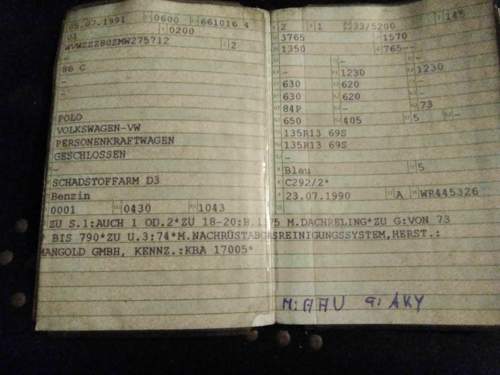 05.07.1991 0600 661016 4
01 0200
WVWZZZ80ZMW275712 2
-
86 C
-
-
-
POLO
VOLKSWAGEN-VW
PERSONENKRAFTWAGEN
GESCHLOSSEN
-
SCHADSTOFFARM D3
Benzin
0001 0430 1043
2 1 33/5200 145
3765 1570
1350 765--
- -
- 1230 1230
630 620
630 620
84P 73
650 405 5 -
135R13 69S
135R13 69S
-
Blau 5
C292/2*
23.07.1990 A WR445326
ZU S.1:AUCH 1 OD.2*ZU 18-20:B.1 5 M.DACHRELING*ZU G:VON 73
* BIS 790*ZU U.3:74*M.NACHRÜSTABGASREINIGUNGSSYSTEM,HERST.:
MANGOLD GMBH, KENNZ.:KBA 17005*